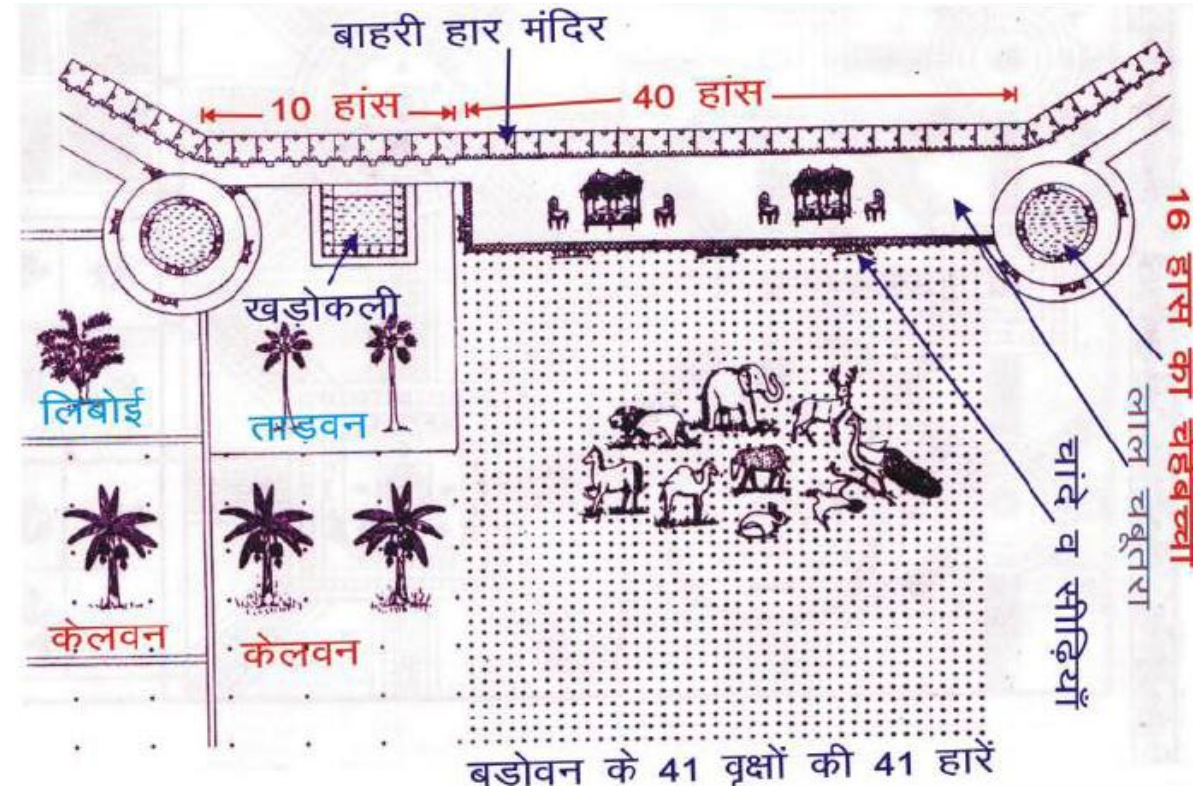 बाहरी हार मंदिर
10 हांस
40 हांस
16 हास का चहबच्चा
लाल चबूतरा
चांदे व सीढ़ियाँ
खडोकली
लिबोई
ताडवन
केलवन
केलवन
बडोवन के 41 वृक्षों की 41 हारें